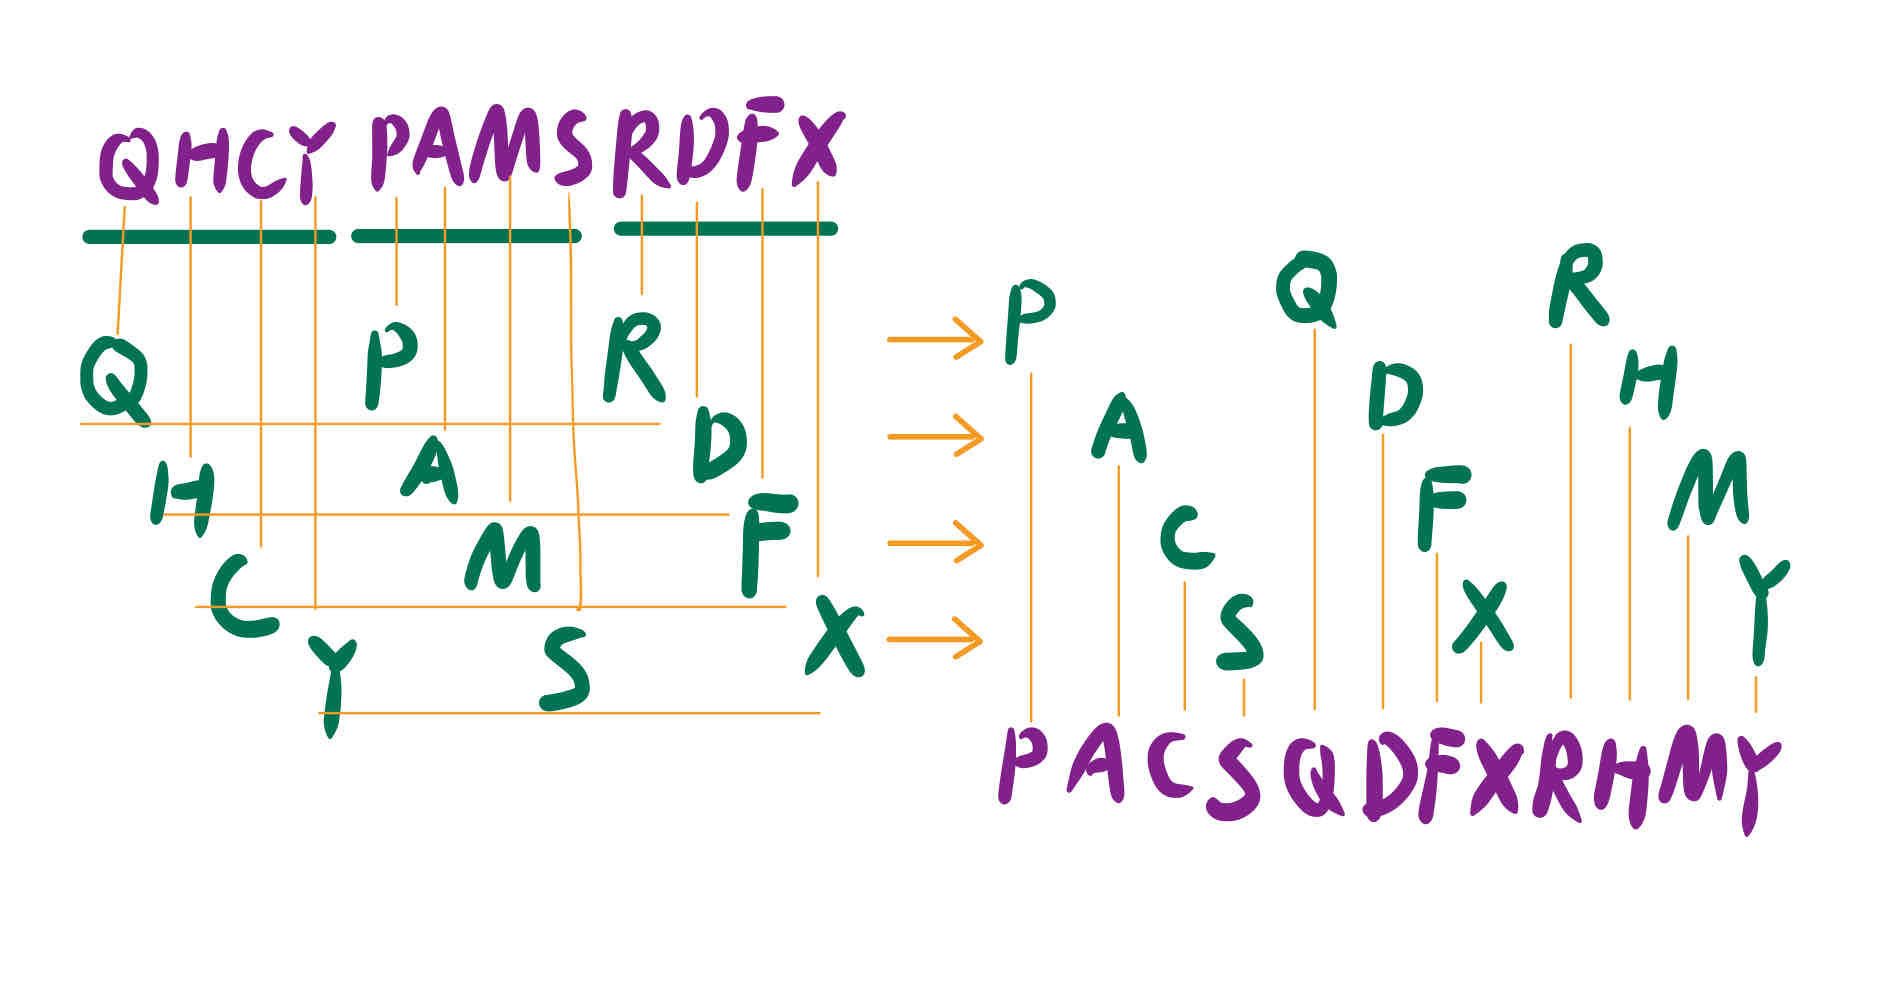 QHCY PAMS RDFX
Q P R
H A D
C M F
Y S X
P Q R
A D H
C F M
S X Y
PACSQDFXRHMY